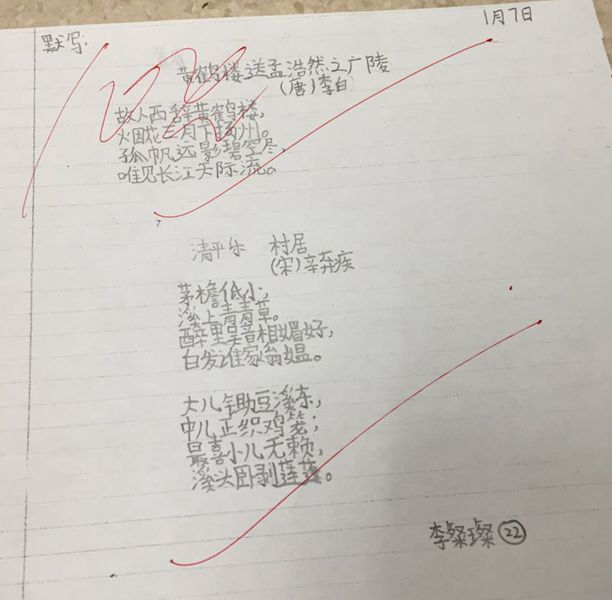 1月7日
默写:
100
黄鹤楼送孟浩然之广陵
(唐)李白
故人西辞黄鹤楼,
烟花三月下扬州。
孤帆远影碧空尽,
唯见长江天际流。
清平乐 村居
(宋)辛弃疾
茅檐低小,
溪上青青草。
醉里吴音相媚好,
白发谁家翁媪。
大儿锄豆溪东,
中儿正织鸡笼;
最喜小儿无赖,
溪头卧剥莲蓬。
李燦璨 22